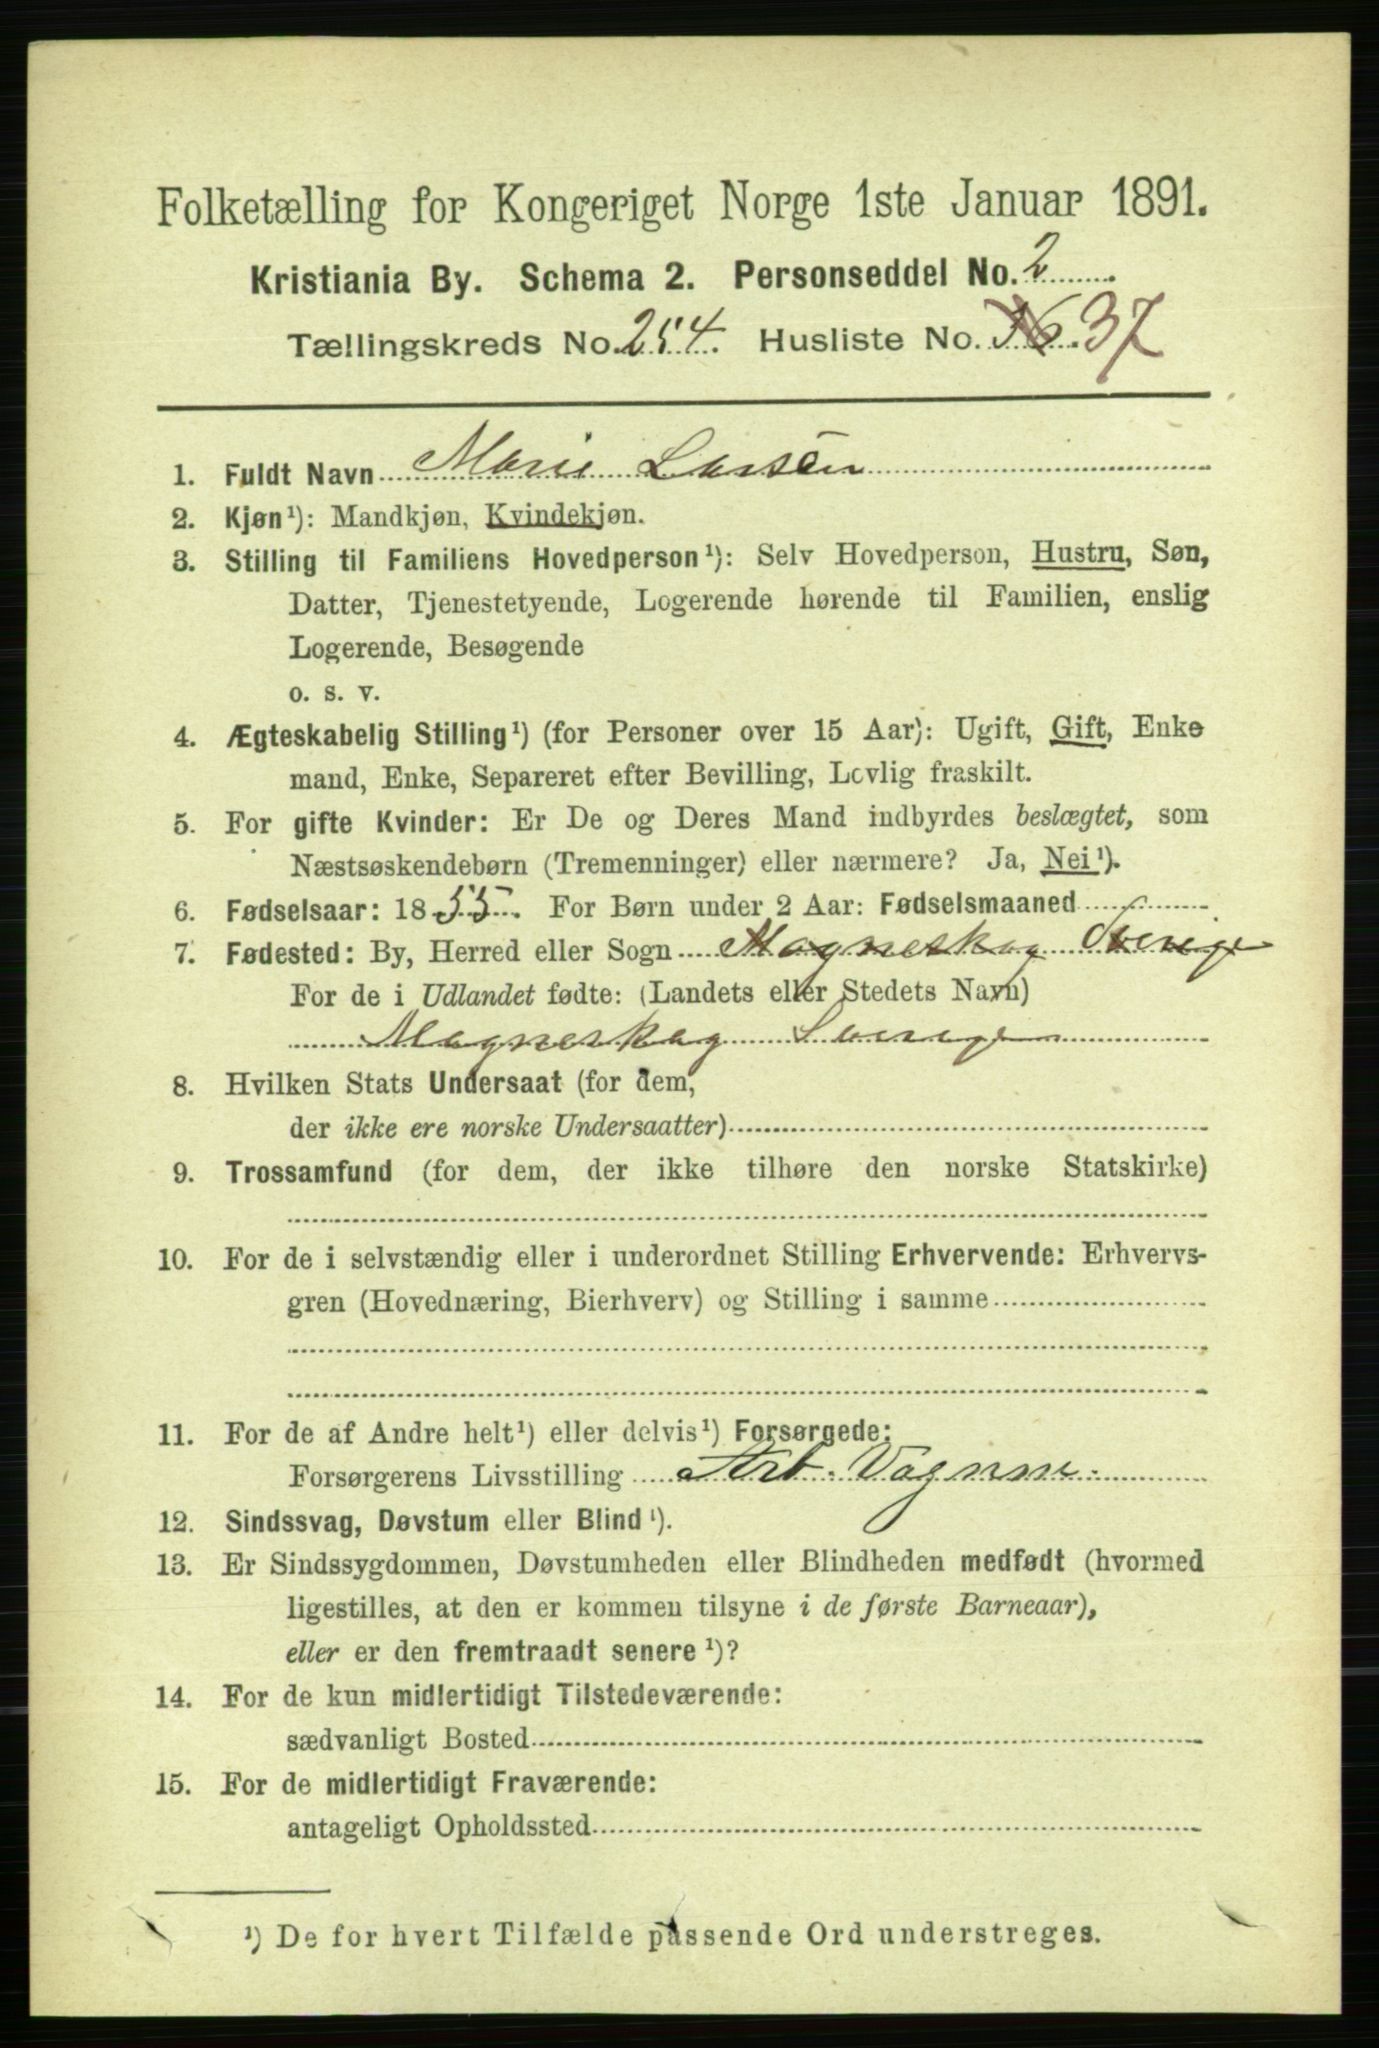 Folketælling for Kongeriget Norge 1ste Januar 1891.
Kristiania By. Schema 2. Personseddel No. 2
Tællingskreds No. 254. Husliste No. 36. 37
1. Fuldt Navn Marie Larsen
2. Kjøn¹): Mandkjøn, Kvindekjøn.
3. Stilling til Familiens Hovedperson¹): Selv Hovedperson, Hustru, Søn,
Datter, Tjenestetyende, Logerende hørende til Familien, enslig
Logerende, Besøgende
o. s. v.
4. Ægteskabelig Stilling¹) (for Personer over 15 Aar): Ugift, Gift, Enke
mand, Enke, Separeret efter Bevilling, Lovlig fraskilt.
5. For gifte Kvinder: Er De og Deres Mand indbyrdes beslægtet, som
Næstsøskendebørn (Tremenninger) eller nærmere? Ja, Nei¹).
6. Fødselsaar: 1855. For Børn under 2 Aar: Fødselsmaaned
7. Fødested: By, Herred eller Sogn Magneskog Sverige
For de i Udlandet fødte: (Landets eller Stedets Navn)
Magneskog Sverige
8. Hvilken Stats Undersaat (for dem,
der ikke ere norske Undersaatter)
9. Trossamfund (for dem, der ikke tilhøre den norske Statskirke)
10. For de i selvstændig eller i underordnet Stilling Erhvervende: Erhvervs-
gren (Hovednæring, Bierhverv) og Stilling i samme
11. For de af Andre helt¹) eller delvis¹) Forsørgede:
Forsørgerens Livsstilling Arb. Vognm.
12. Sindssvag, Døvstum eller Blind¹).
13. Er Sindssygdommen, Døvstumheden eller Blindheden medfødt (hvormed
ligestilles, at den er kommen tilsyne i de første Barneaar),
eller er den fremtraadt senere¹)?
14. For de kun midlertidigt Tilstedeværende:
sædvanligt Bosted
15. For de midlertidigt Fraværende:
antageligt Opholdssted
¹) De for hvert Tilfælde passende Ord understreges.